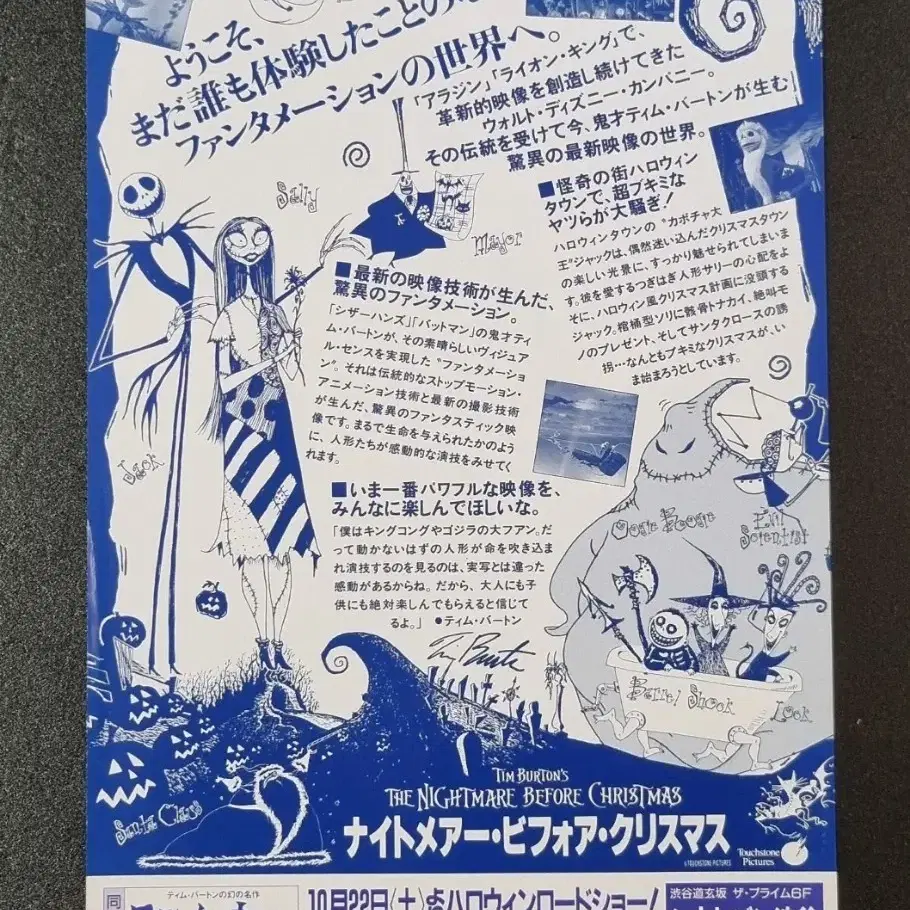 ようこそ、
まだ誰も体験したことの
ファンタメーションの世界へ。
「アラジン」「ライオン・キング」で、
革新的映像を創造し続けてきた
ウォルト・ディズニー・カンパニー。
その伝統を受けて今、鬼才ティム・バートンが生む
驚異の最新映像の世界。
■怪奇の街ハロウィン
タウンで、超ブキミな
ヤツらが大騒ぎ!
ハロウィンタウンの“カボチャ大
王”ジャックは、偶然迷い込んだクリスマスタウン
の楽しい光景に、すっかり魅せられてしまいま
す。彼を愛するつぎはぎ人形サリーの心配をよ
そに、ハロウィン風クリスマス計画に没頭する
ジャック。棺桶型ソリに骸骨トナカイ、絶叫モ
ノのプレゼント、そしてサンタクロースの誘
拐…なんともブキミなクリスマスが、い
ま始まろうとしています。
Sally
Mayor
■最新の映像技術が生んだ、
驚異のファンタメーション。
「シザーハンズ」「バットマン」の鬼才ティ
ム・バートンが、その素晴らしいヴィジュア
ル・センスを実現した“ファンタメーショ
ン”。それは伝統的なストップモーション・
アニメーション技術と最新の撮影技術
が生んだ、驚異のファンタスティック映
像です。まるで生命を与えられたかのよう
に、人形たちが感動的な演技をみせてく
れます。
Jack
■いま一番パワフルな映像を、
みんなに楽しんでほしいな。
「僕はキングコングやゴジラの大フアン。だ
って動かないはずの人形が命を吹き込ま
れ演技するのを見るのは、実写とは違った
感動があるからね。だから、大人にも子
供にも絶対楽しんでもらえると信じて
るよ。」 ●ティム・バートン
Tim Burton
Oogie Boogie
Evil
Scientist
Barrel
Shock
Lock
Santa Claus
TIM BURTON'S
THE NIGHTMARE BEFORE CHRISTMAS
ナイトメアー・ビフォア・クリスマス
©TOUCHSTONE PICTURES
Touchstone
Pictures
同
ティム・バートンの幻の名作
10月22日(土)よりハロウィンロードショー!
渋谷道玄坂 ザ・プライム6F